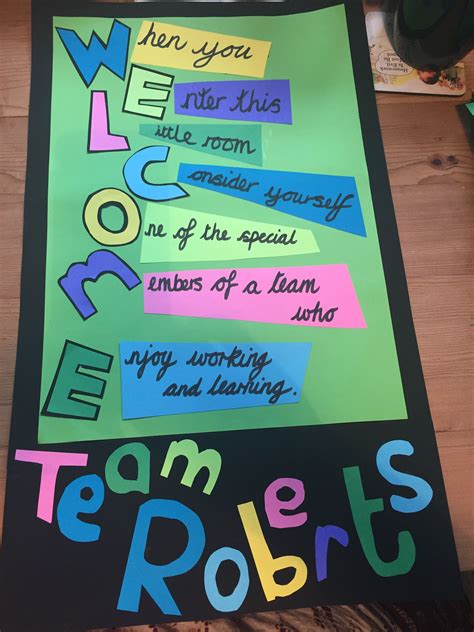 When you
Enter this
Little room
Consider yourself
One of the special
Members of a team
who
Enjoy working
and learning.
Team
Roberts